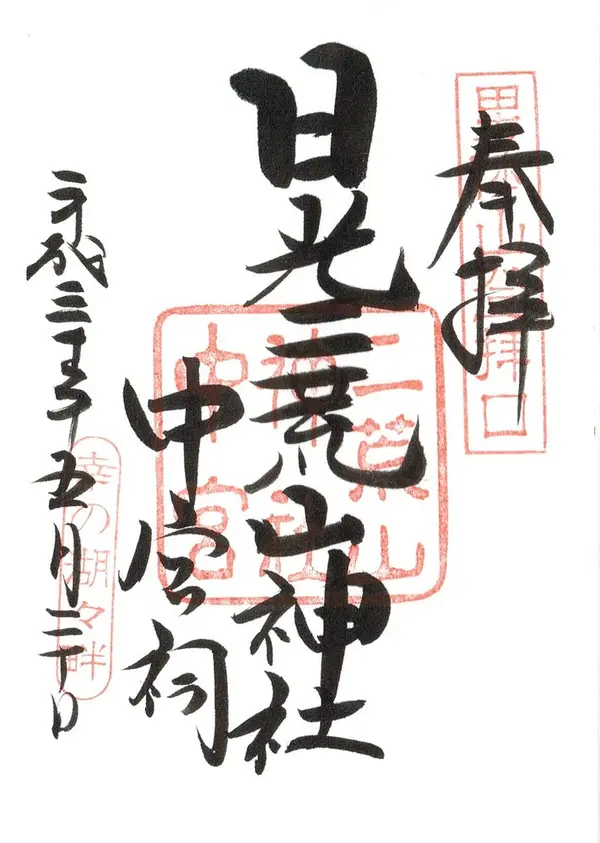 奉拝
日光二荒山神社
中宮祠
平成三十年五月二十日
男体山登拝口
二荒山
神社
中宮
幸の湖々畔